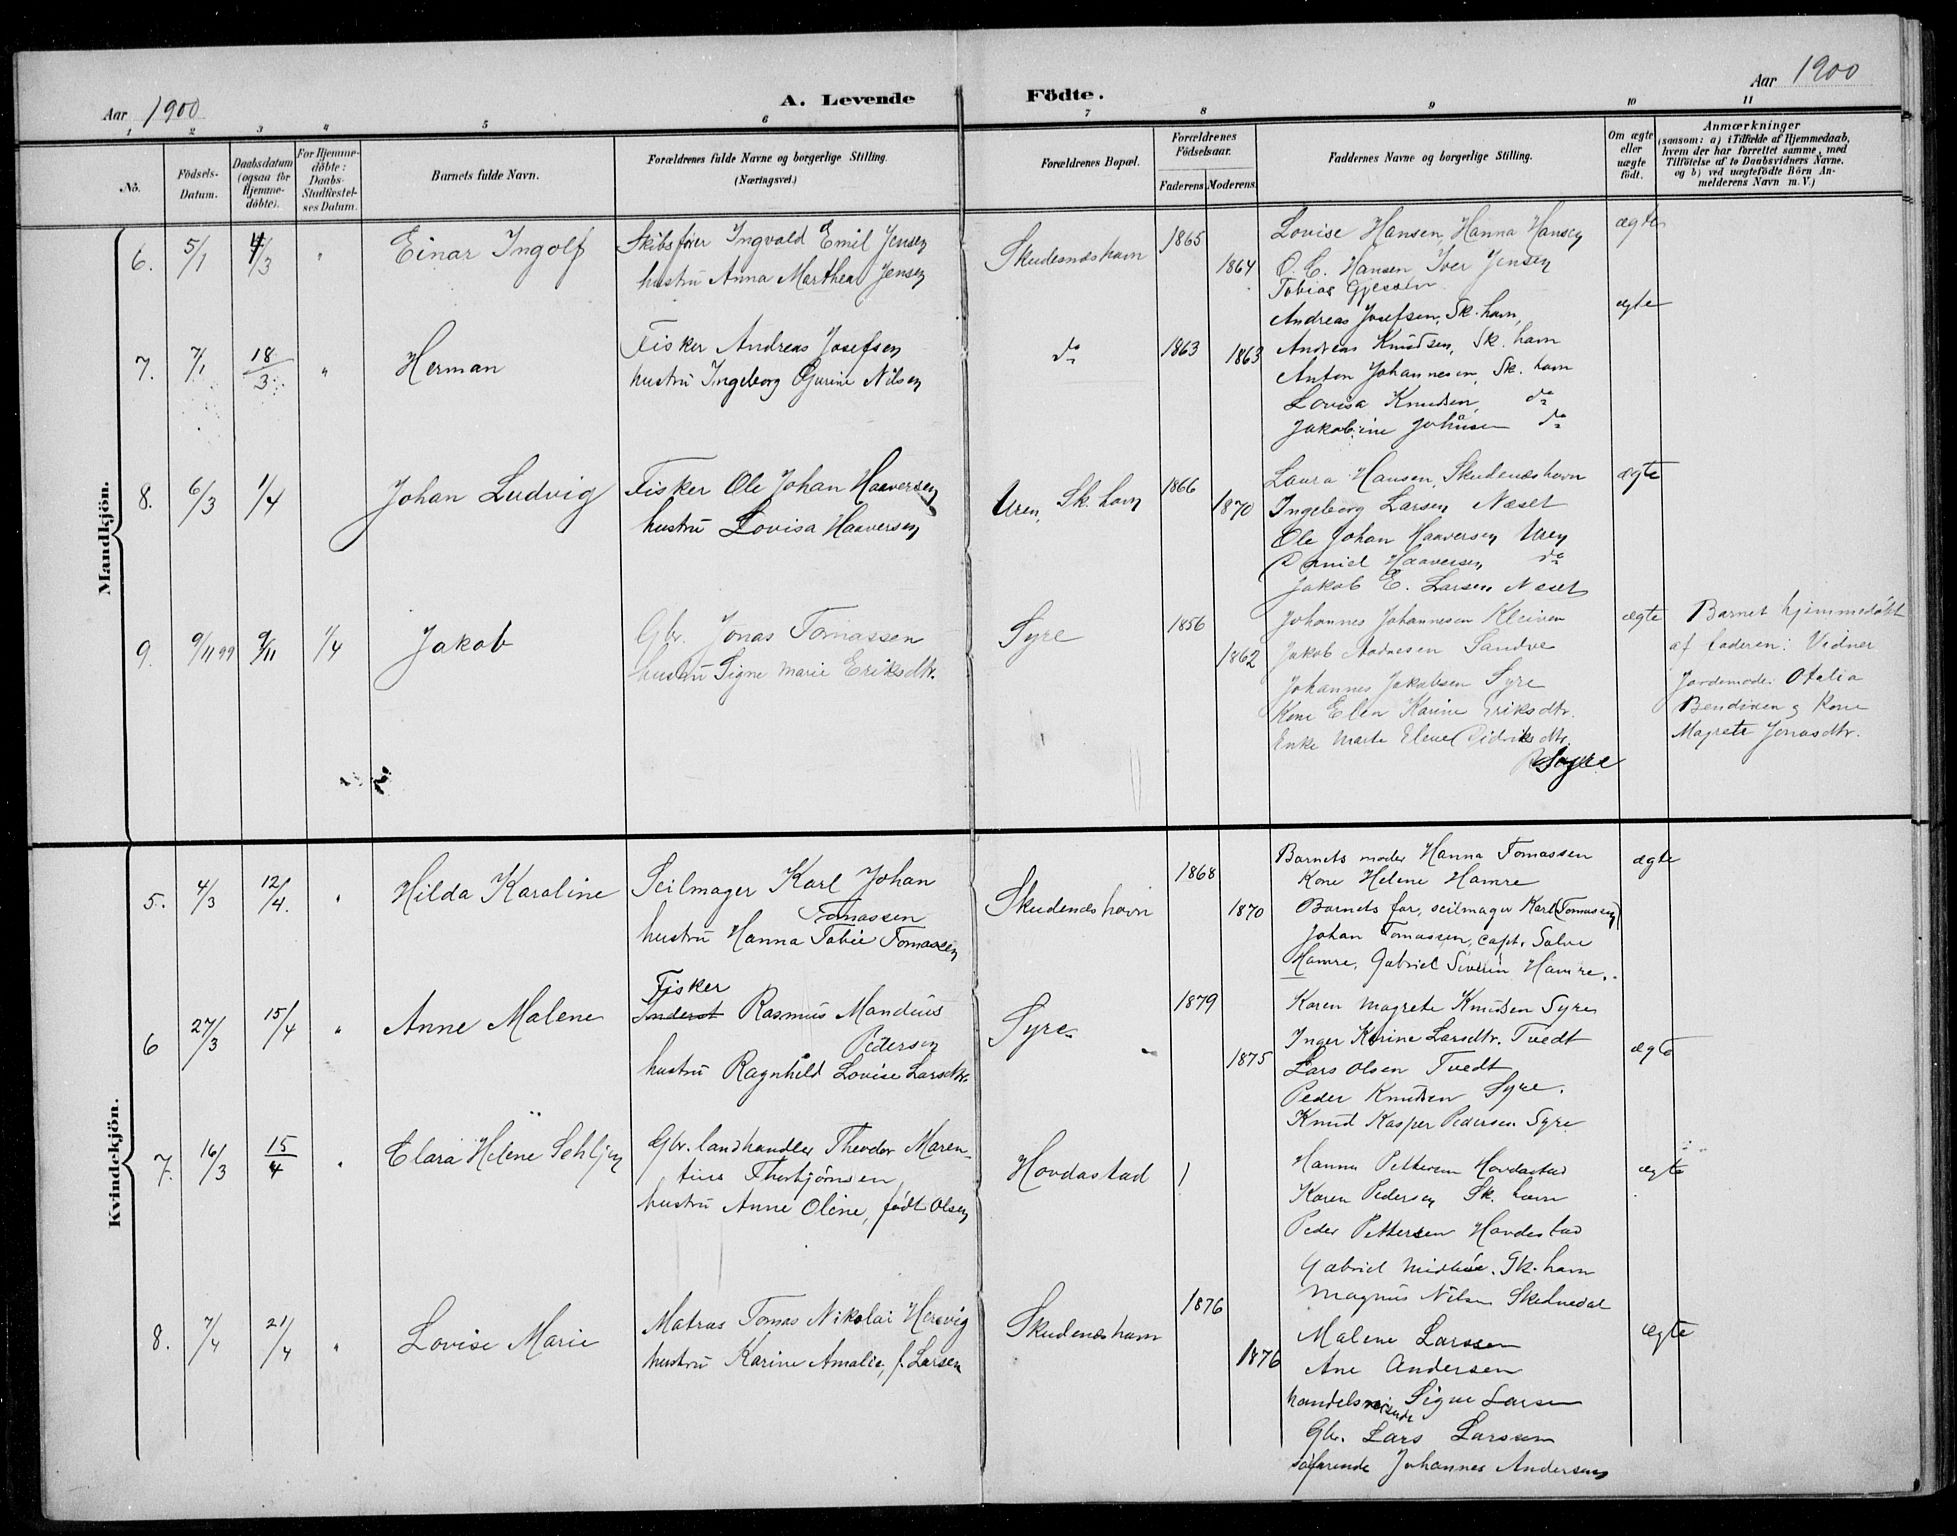 Aar 1900
A. Levende Födte.
Aar 1900
1 2 3 4 5 6 7 8 9 10 11
No.
Födsels-Datum.
Daabsdatum (ogsaa for Hjemme-döbte).
For Hjemme-döbte: Daabs-Stadfæstel-ses Datum.
Barnets fulde Navn.
Forældrenes fulde Navne og borgerlige Stilling. (Næringsvei.)
Forældrenes Bopæl.
Forældrenes Födselsaar.
Faderens. Moderens.
Faddernes Navne og borgerlige Stilling.
Om ægte eller uægte födt.
Anmærkninger
(saasom: a) i Tilfælde af Hjemmedaab, hvem der har forrettet samme, med Tilföielse af to Daabsvidners Navne, og b) ved uægtefödte Börn An-melderens Navn m. V.)
Mandkjön.
6. 5/1 4/3 " Einar Ingolf
Skibsfører Ingvald Emil Jensen
hustru Anna Marthea Jensen
Skudesnæshavn 1865 1864
Lovise Hansen, Hanna Hansen
O. C. Hansen, Iver Jensen
Tobias Gjessen
ægte
7. 7/1 18/3 " Herman
Fisker Andreas Josefsen
hustru Ingeborg Gurine Nilsen
do 1863 1863
Andreas Josefsen, Sk. havn,
Andreas Knudsen, Sk. havn
Anton Johannesen, Sk. havn
Lovisa Knudsen, do
Jakobine Johnsen do
ægte
8. 6/3 1/4 Johan Ludvig
Fisker Ole Johan Haaversen
hustru Lovisa Haaversen
Uren, Sk. havn 1866 1870
Laura Hansen, Skudenæshavn
Ingeborg Larsen Næset
Ole Johan Haaversen Uren
Daniel Haaversen do
Jakob E. Larsen Næset
ægte
9. 9/11 99 9/11 1/4 Jakob
Gbr. Jonas Tomassen
hustru Signe Marie Eriksdtr.
Syre 1856 1862
Johannes Johannesen Kleiven
Jakob Aadnesen Sandve
Johannes Jakobsen Syre
Kone Elen Karine Eriksdtr.
Enke Marte Elene Didriksdtr.
Syre
ægte
Barnet hjemmedøbt
af faderen: Vidner
Jordemoder Otelia
Bendixen og Kone
Magrete Jonasdtr.
Kvindekjön.
5. 4/3 12/4. " Hilda Karaline
Seilmager Karl Johan
Tomassen
hustru Hanna Tobie Tomassen
Skudenæshavn 1868 1870
Barnets moder Hanna Tomassen
Kone Helene Hamre
Barnets far, seilmager Karl (Tomassen)
Johan Tomassen, capt. Salve
Hamre, Gabriel Severin Hamre.
ægte
6 27/3 15/4 " Anne Malene
Fisker
Inderst Rasmus Mandius
Pedersen
hustru Ragnhild Lovise Larsdtr.
Syre 1879 1875
Karen Magrete Knudsen Syre
Inger Karine Larsdtr. Tvedt
Lars Olsen Tvedt
Peder Knudsen Syre.
Knud Kasper Pedersen Syre
ægte
7. 16/3 15/4 " Clara Helene
Gbr. landhandler Theodor Maren-
tius Thorbjörnsen
hustru Anne Oline, født Olsen
Hovdastad
Hanna Pettersen Hovdastad
Karen Pedersen Sk. havn
Peder Pettersen Hovdestad
Gabriel Sk. havn
Magnus Nilsen
ægte
8. 7/4 21/4 " Lovise Marie
Matros Tomas Nikolai Hersvig
hustru Karine Amalie, f. Larsen
Skudenæshavn 1876 1876
Malene Larssen
Ane Andersen
handelsreisende Signe Larsen
Gbr. Lars Larssen
søfarende Johannes Andersen
ægte